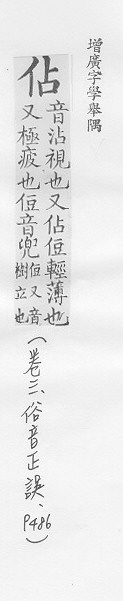 增廣字學舉隅
佔 音沾視也又佔侸輕薄也
又極疲也侸音兜侸又音
樹立也
(卷三、俗音正誤、P486)